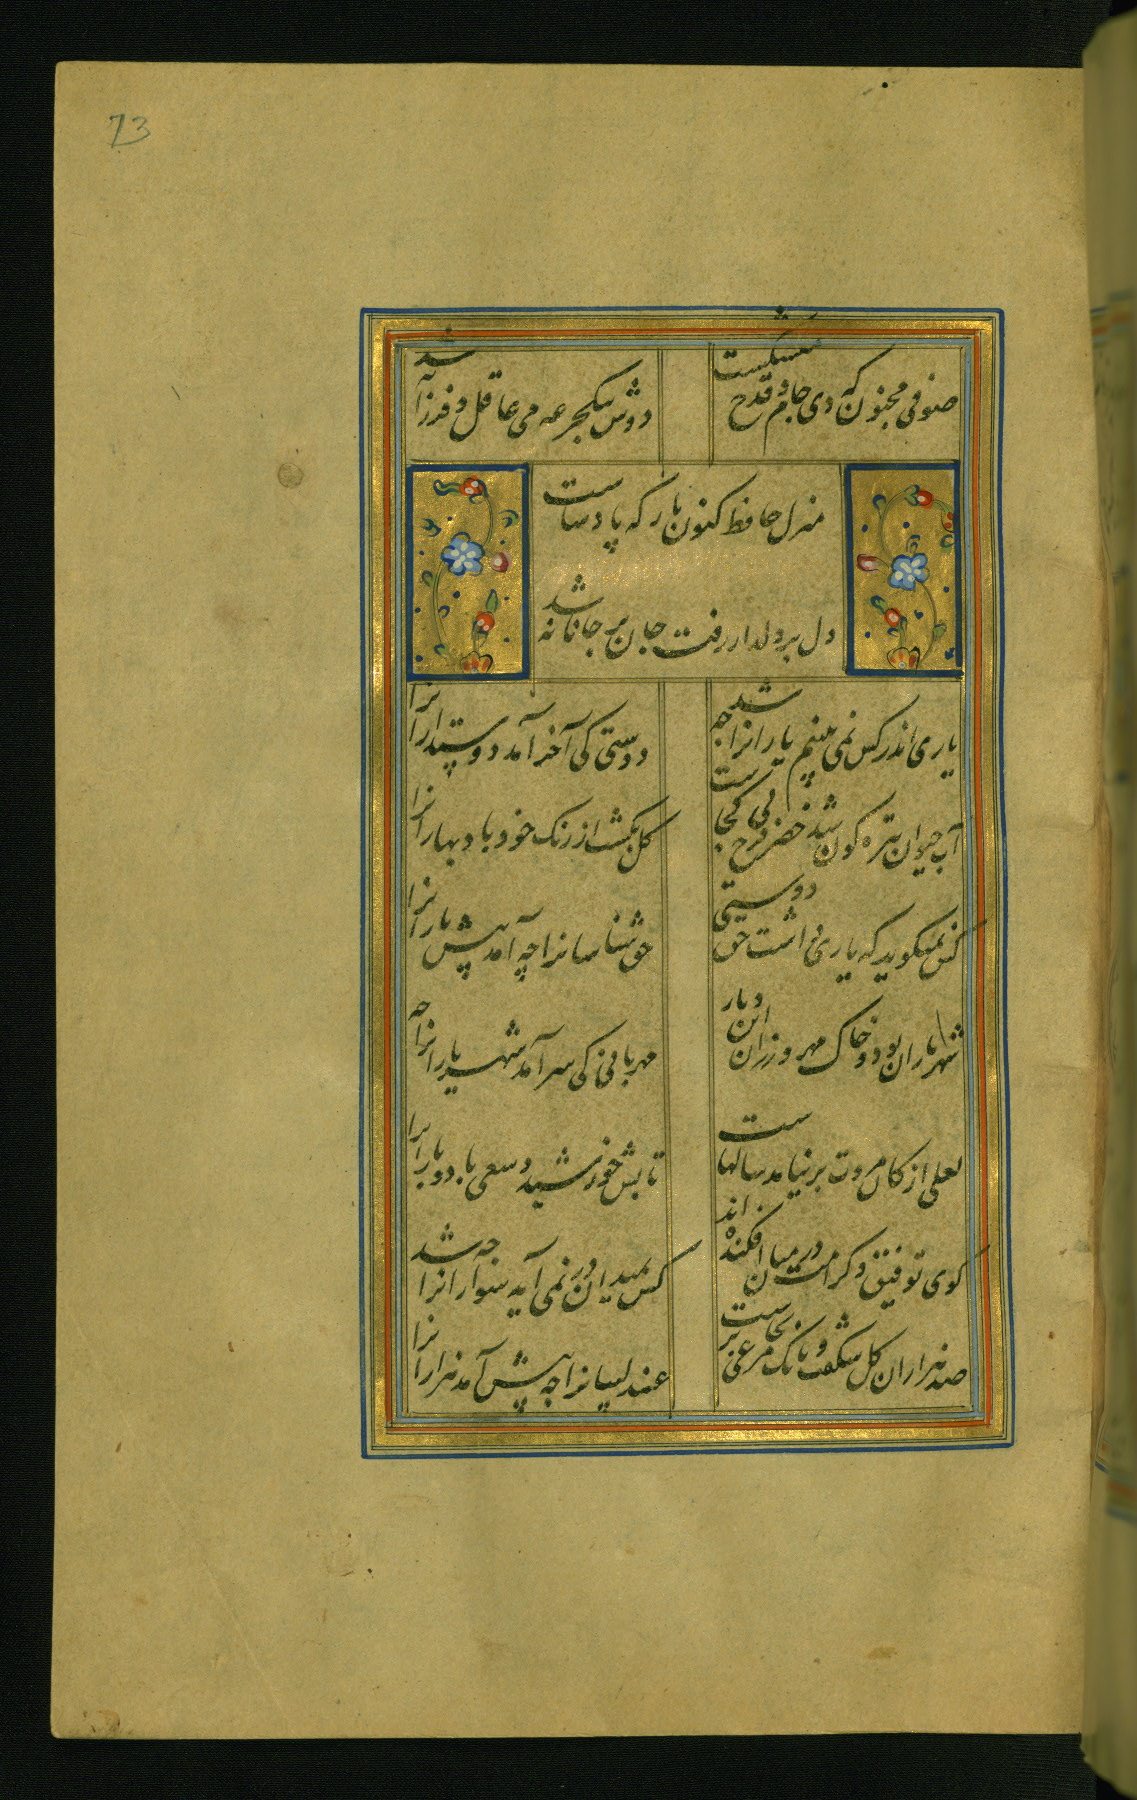 73
صوفی مجنون که دی جام و قدح میشکست
دوش بیکجرعه می عاقل و فرزانه شد
منزل حافظ کنون بارکه پادساست
دل بر دلدار رفت جان بر جانانه شد
یاری اندر کس نمی بینم یارانرا چه شد
دوستی کی آخر آمد دوستدارانرا
آب حیوان تیره کون شد خضر فرخ پی کجاست
کل بکشت از رنک خود باد بهارانرا
کس نمیکوید که یاری داشت حق دوستی
حق شناسانرا چه آمد پیش یارانرا
شهر یاران بود و خاک مهر ورزان این دیار
مهربانی کی سر آمد شهریارانرا چه
لعلی از کان مروت بر نیامد سالهاست
تابش خورشید و سعی باد و بارانرا
کوی توفیق و کرامت در میان افکنده اند
کس بمیدان در نمی آید سوارانرا چه شد
صد هزاران کل شکفت و بانک مرغی بر نخاست
عندلیبانرا چه پیش آمد هزارانرا